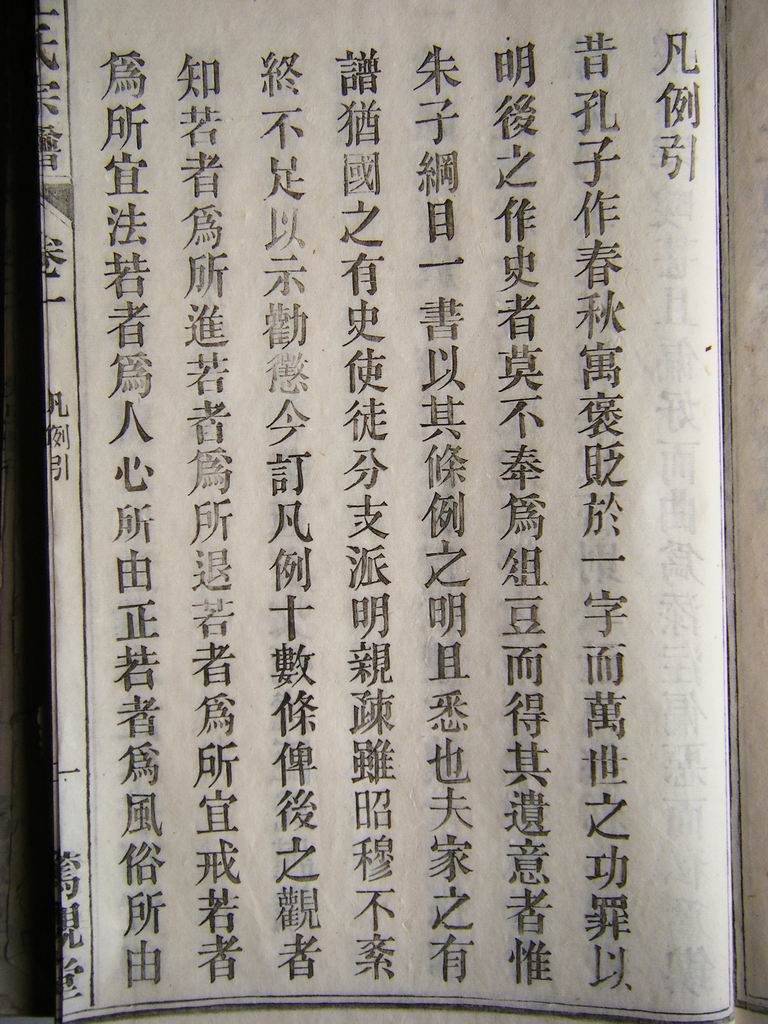 凡例引
昔孔子作春秋寓褒貶於一字而萬世之功罪以
明後之作史者莫不奉爲俎豆而得其遺意者惟
朱子綱目一書以其條例之明且悉也夫家之有
譜猶國之有史使徒分支派明親疎雖昭穆不紊
終不足以示勸懲今訂凡例十數條俾後之觀者
知若者爲所進若者爲所退若者爲所宜戒若者
爲所宜法若者爲人心所由正若者爲風俗所由
氏宗譜
卷一
凡例引
一
堂